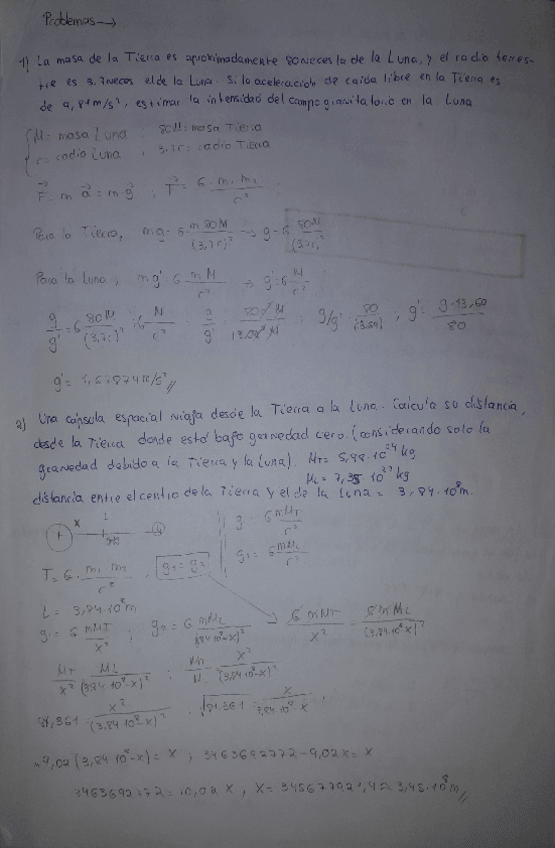 Problemas →
1) La masa de la Tierra es aproximadamente 80 veces la de la Luna, y el radio terres-
tre es 3.7 veces el de la Luna. Si la aceleración de caída libre en la Tierra es
de 9,81 m/s², estimar la intensidad del campo gravitatorio en la Luna
M = masa Luna ; 80M = masa Tierra
r = radio Luna ; 3,7r = radio Tierra
F = m a = m·g ; F = G · m₁ m₂ / r² ;
Para la Tierra, mg = G m 80M / (3,7r)² → g = G 80M / (3,7r)²
Para la Luna, mg' = G m M / r² → g' = G M / r²
g / g' = G 80M / (3,7r)² : G M / r² ; g / g' ; g/g' = 80 / 13.69 ; g' = g · 13,69 / 80
g' = 1,67874 m/s² //
2) Una cápsula espacial viaja desde la Tierra a la Luna. Calcula su distancia,
desde la Tierra donde está bajo gravedad cero. (considerando solo la
gravedad debido a la Tierra y la Luna). M_T = 5,98·10²⁴ kg
M_L = 7,35·10²² kg
distancia entre el centro de la Tierra y el de la Luna = 3,84·10⁸ m.
x L
F = G · m₁ m₂ / r² , g₁ = g₂
g = G m M_T / r²
g₂ = G m M_L / r²
L = 3,84·10⁸ m
g₁ = G m M_T / x² ; g₂ = G m M_L / (3,84·10⁸ - x)² → G m M_T / x² = G m M_L / (3,84·10⁸ - x)²
M_T / x² = M_L / (3,84·10⁸ - x)² ; M_T / M_L = x² / (3,84·10⁸ - x)²
81,361 = x² / (3,84·10⁸ - x)² ; √81.361 = x / 3,84·10⁸ - x ;
9,02 (3,84·10⁸ - x) = x ; 3463692772 - 9,02x = x
3463692772 = 10,02 x , x = 345677921,4 ≈ 3,45·10⁸ m //